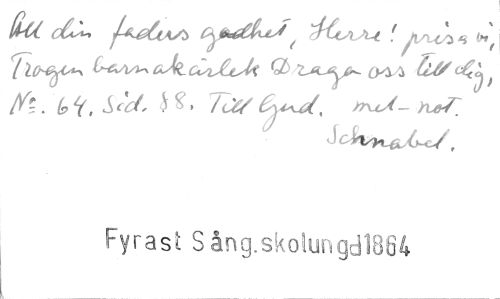 All din faders godhet, Herre! prisa vi,
Trogen barnakärlek Draga oss till dig,
No. 64. Sid. 88. Till Gud. mel-not.
Schnabel.
Fyrast Sång.skolungd1864